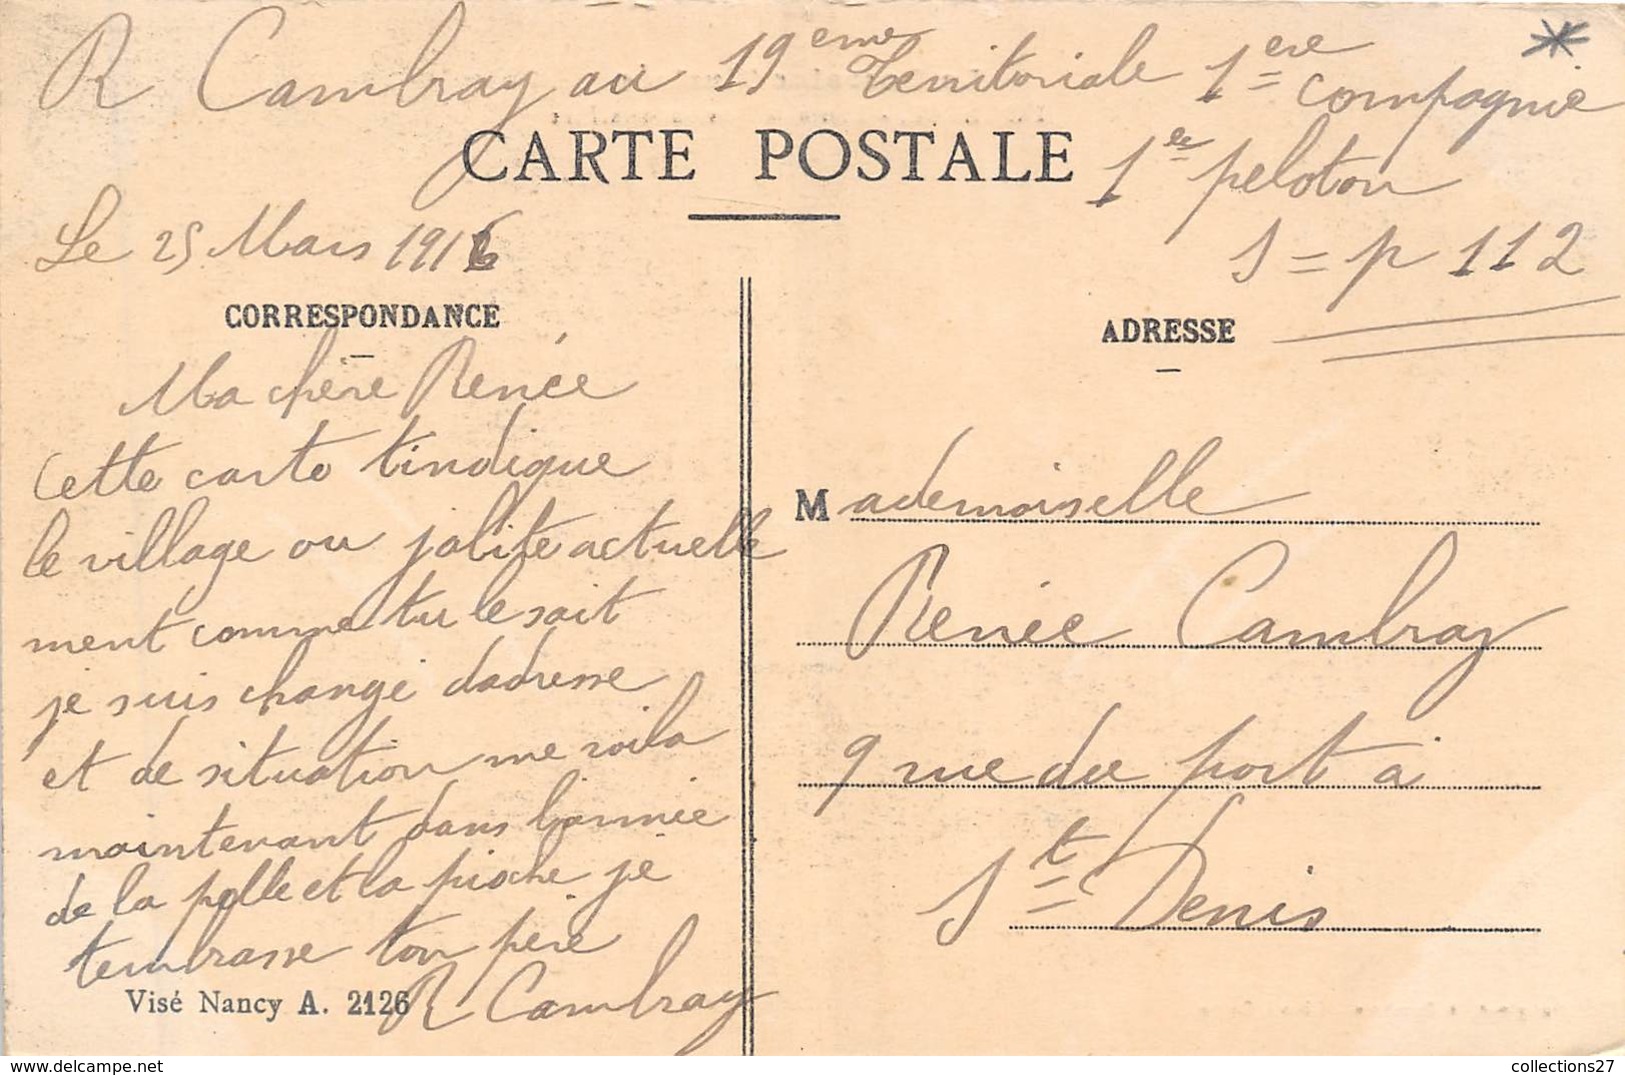 R Cambray au 19eme Territoriale 1ere compagnie
CARTE POSTALE
1er peloton
S = p 112
Le 25 Mars 1916
CORRESPONDANCE
ADRESSE
Ma chère Renée
Cette carte t'indique
le village ou j'abite actuelle
ment comme tu le sait
je suis changé dadresse
et de situation me voila
maintenant dans l'armée
de la pelle et la pioche je
tembrasse ton père
R Cambray
Visé Nancy A. 2126
Mademoiselle
Renée Cambray
9 rue du port à
St Denis
collections27